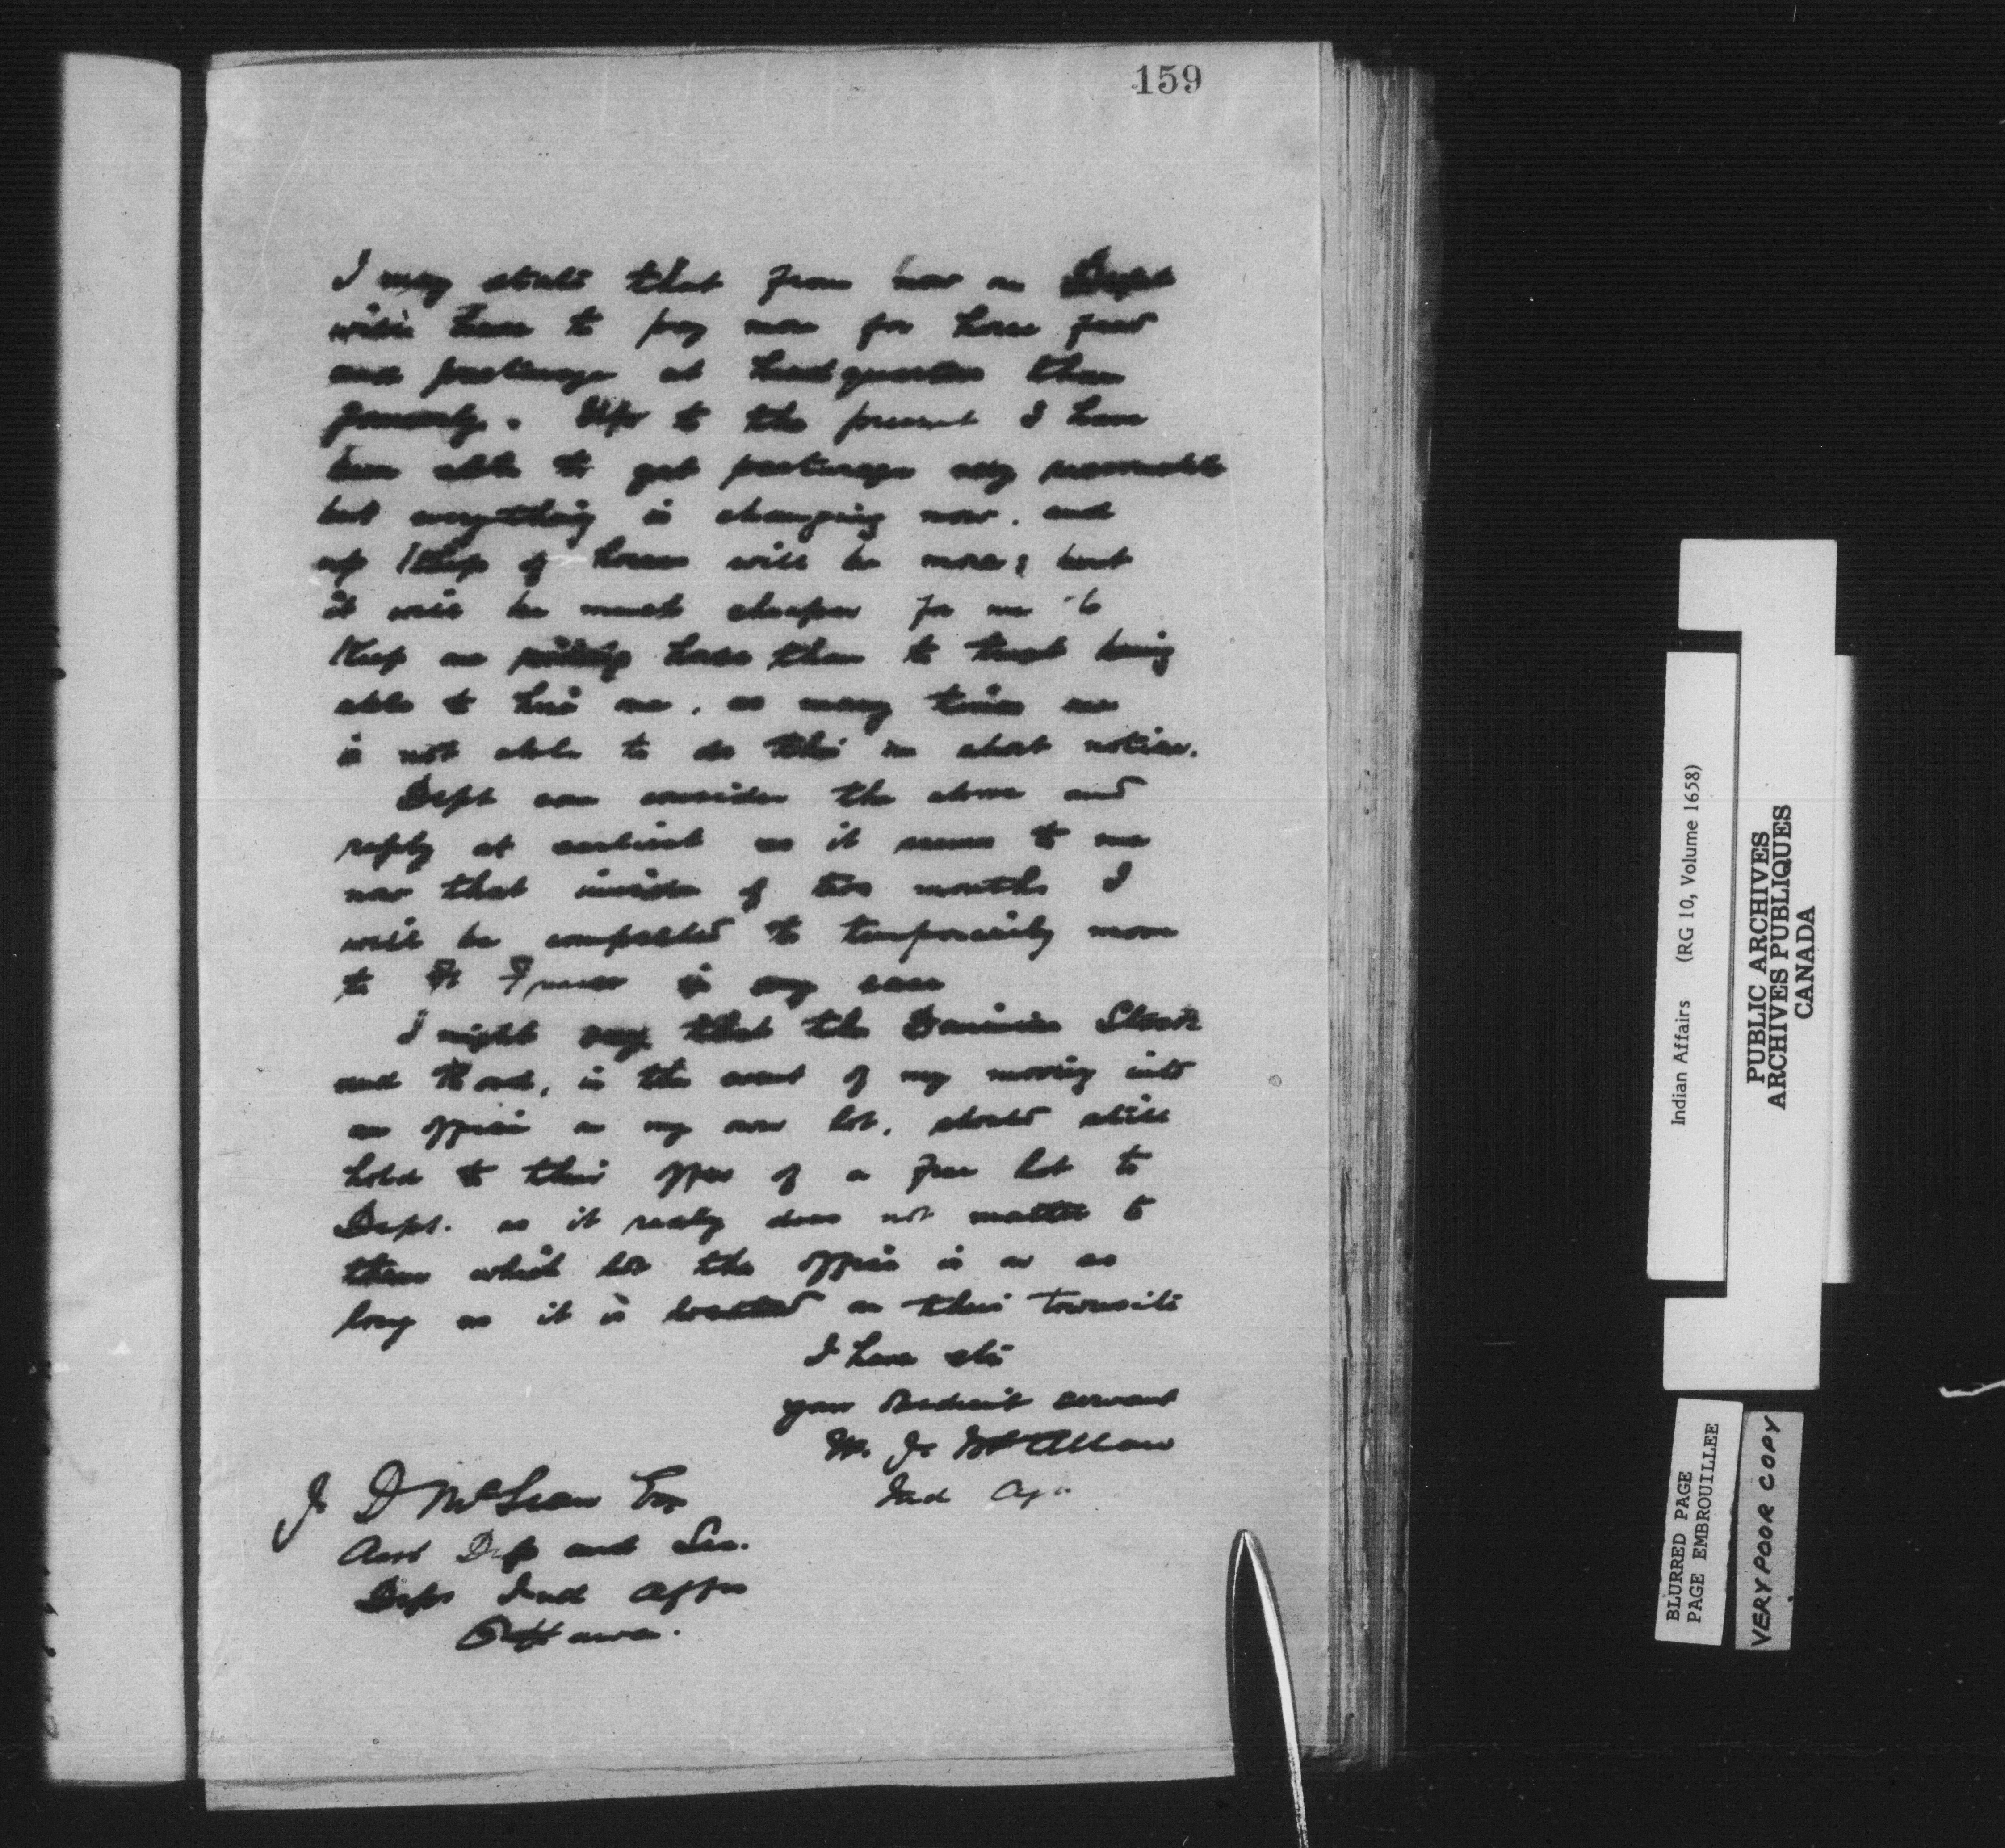 159
I may state that from now on Dept
will have to pay more for horse feed
and pasturage at headquarters than
formerly. Up to the present I have
been able to get pasturage very reasonable
but everything is changing now. and
up keep of horses will be more; but
it will be much cheaper for me to
keep a horse than to trust being
able to hire one, as many times one
is not able to do this on short notice.
Dept can consider the above and
reply at earliest as it seems to me
now that inside of two months I
will be compelled to temporarily move
to Ft Fraser in any case
I might say that the Dominion Stock
and Bond, in the event of my moving into
an office on my own lot, should still
hold to their offer of a free lot to
Dept. as it really does not matter to
them which lot the office is on as
long as it is located on their townsite
I have etc
your obedient servant
W. J. McAllan
Ind Agt
J D McLean Esq
Asst Dep and Sec.
Dept Ind Affrs
Ottawa.
Indian Affairs (RG 10, Volume 1658)
PUBLIC ARCHIVES
ARCHIVES PUBLIQUES
CANADA
BLURRED PAGE
PAGE EMBROUILLEE
VERY POOR COPY